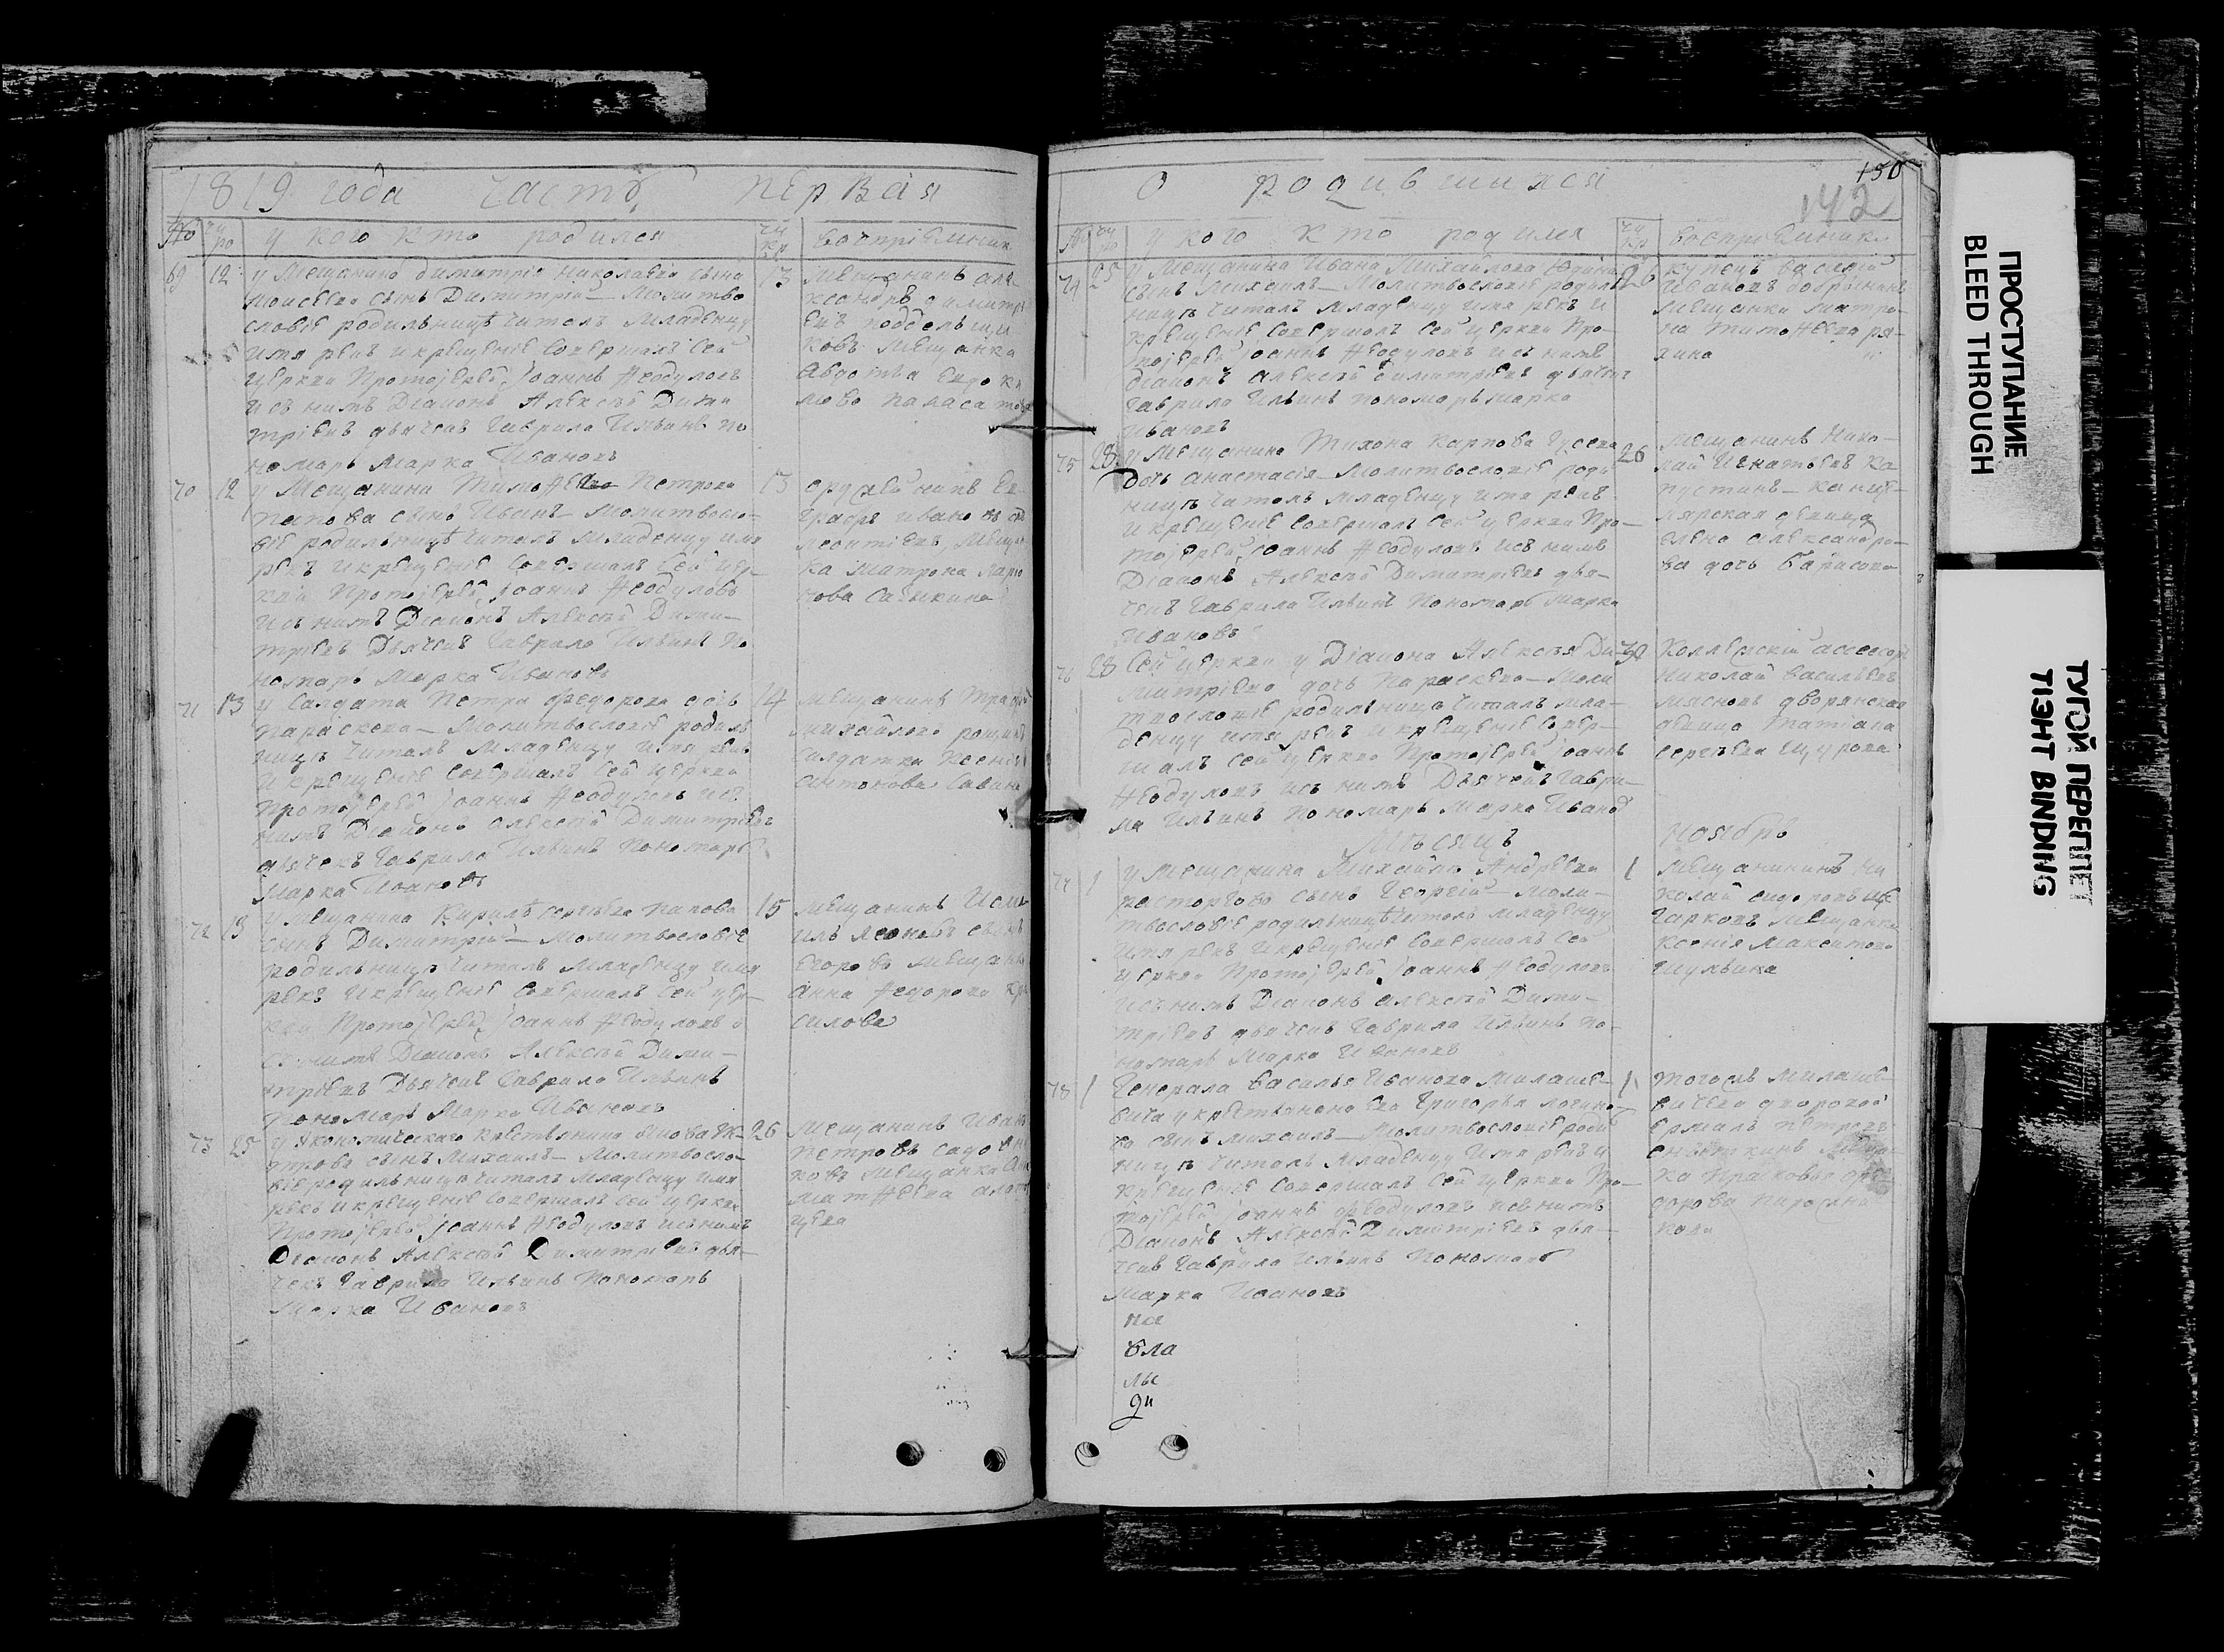 1819 года часть первая
№ чи ро у кого кто родился чи кр восприемник
69 12 у Мещанина димитрия николаева сына
Моисеева сынъ Димитрий — Молитво
словие родильнице читалъ Младенцу
имя рекъ и крещение совершалъ сей
церкви Протоиерей Иоаннъ Ѳеодуловъ
и съ нимъ Диаконъ Алексей Дими
триевъ дьячекъ Гаврила Ильинъ по
номарь Марка Ивановъ
13 Мещанинъ але
ксандръ димитри
евъ поддельщи
ковъ Мещанка
Авдотья Евдоки
мова
70 12 у Мещанина Тимоѳея Петрова
Папова сынъ Иванъ — Молитвосло-
вие родильнице читалъ Младенцу имя
рекъ и крещение совершалъ сей цер-
кви Протоиерей Иоаннъ Ѳеодуловъ
и съ нимъ Диаконъ Алексей Дими-
триевъ Дьячекъ Гаврило Ильинъ по
номарь Марка Ивановъ
13 оружейникъ Ев
графъ иванов
леонтиевъ, Мещан
ка Матрона
71 13 у Салдата Петра Федорова дочь
параскева — Молитвословие родиль
нице читалъ Младенцу имя рекъ
и крещение совершалъ сей церкви
Протоиерей Иоаннъ Ѳеодуловъ и съ
нимъ Диаконъ Алексей Димитриевъ
дьячекъ Гаврила Ильинъ Пономарь
Марка Ивановъ
14 мещанинъ
михайловъ
салдатка Ксения
антонова Савина
72 13 у мещанина Кирилы сергеева папова
сынъ Димитрий — Молитвословие
родильнице читалъ Младенцу имя
рекъ и крещение совершалъ сей цер-
кви Протоиерей Иоаннъ Ѳеодуловъ и
съ нимъ Диаконъ Алексей Дими-
триевъ Дьячекъ Гаврило Ильинъ
пономарь Марка Ивановъ
15 мещанинъ
Егоровъ мещанка
Анна Ѳедорова
силова
73 25 у Экономическаго крестьянина
трова сынъ Михаилъ — Молитвосло-
вие родильнице читалъ Младенцу имя
рекъ и крещение совершалъ сей церкви
Протоиерей Иоаннъ Ѳеодуловъ и съ нимъ
Диаконъ Алексей Димитриевъ дья-
чекъ Гаврила Ильинъ Пономарь
Марка Ивановъ
26 мещанинъ Иван
Петровъ садовни
ковъ мещанка
матѳеева
цева
О родившихся
150
142
№ чи ро у кого кто родился чи кр восприемник
74 25 у Мещанина Ивана Михайлова Юдина
сынъ Михаилъ — Молитвословие родиль
нице читалъ младенцу имя рекъ и
крещение совершалъ сей церкви Про-
тоиерей Иоаннъ Ѳеодуловъ и съ нимъ
диаконъ алексей димитриевъ дьячекъ
гаврила Ильинъ пономарь марка
Ивановъ
26 купецъ василий
Ивановъ добрынинъ
мещанка матро-
на тимоѳеева ря-
хина
75 28 у Мещанина Тихона Карпова Гусева
дочь анастасия — Молитвословие роди
нице читалъ младенцу имя рекъ
и крещение совершалъ сей церкви Про-
тоиерей Иоаннъ Ѳеодуловъ и съ нимъ
Диаконъ Алексей Димитриевъ дья-
чекъ Гаврила Ильинъ Пономарь Марка
Ивановъ
26 мещанинъ Нико-
лай Игнатьевъ ка
пустинъ — канце-
лярская девица
елена александро-
ва дочь барисова
76 28 сей церкви у Диакона Алексея Ди-
митриева дочь Параскева — Моли
твословие родильнице читалъ мла-
денцу имя рекъ и крещение совер-
шалъ сей церкви Протоиерей Иоаннъ
Ѳеодуловъ и съ нимъ Дьячекъ гаври-
ла Ильинъ Пономарь Марка Иванов
30 Коллежский ассесоръ
Николай васильевъ
мясновъ дворянская
девица татиана
сергеева щурова
Месяцъ Ноябрь
77 1 у Мещанина Михайлы Андреева
расторгова сынъ Георгий — Моли-
твословие родильнице читалъ младенцу
имя рекъ и крещение совершалъ сей
церкви Протоиерей Иоаннъ Ѳеодуловъ
и съ нимъ Диаконъ алексей Дими-
триевъ дьячекъ гаврила Ильинъ по-
номарь Марка Ивановъ
1 мещанининъ ни
колай сидоровъ
чарковъ Мещанка
ксения Максимова
Шульпина
78 1 Генерала василья Иванова Милаше-
вича у крестьянина ево Григорья логино-
ва сынъ михаилъ — Молитвословие роди
нице читалъ Младенцу имя рекъ и
крещение совершалъ сей церкви Про-
тоиерей Иоаннъ Ѳеодуловъ и съ нимъ
Диаконъ Алексей Димитриевъ дья-
чекъ Гаврила Ильинъ Пономарь
Марка Ивановъ
1 тогожъ Милаше-
вичева дворовой
ермалъ петровъ
ка Прасковья
дорова
кова
на
бла
лы
ди
ПРОСТУПАНИЕ
BLEED THROUGH
ТУГОЙ ПЕРЕПЛЕТ
TIGHT BINDING